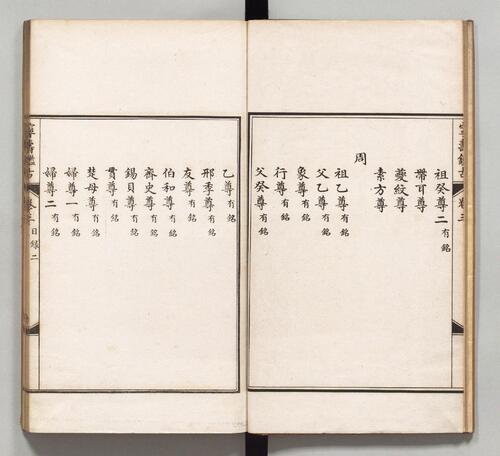 寧壽鑑古 卷三
祖癸尊二有銘
帶耳尊
夔紋尊
素方尊
周
祖乙尊有銘
父乙尊有銘
象尊有銘
行尊有銘
父癸尊有銘
乙尊有銘
邢季尊有銘
友尊有銘
伯和尊有銘
齊史尊有銘
錫貝尊有銘
貫尊有銘
楚母尊有銘
婦尊一有銘
婦尊二有銘
寧壽鑑古 卷三 目錄 二